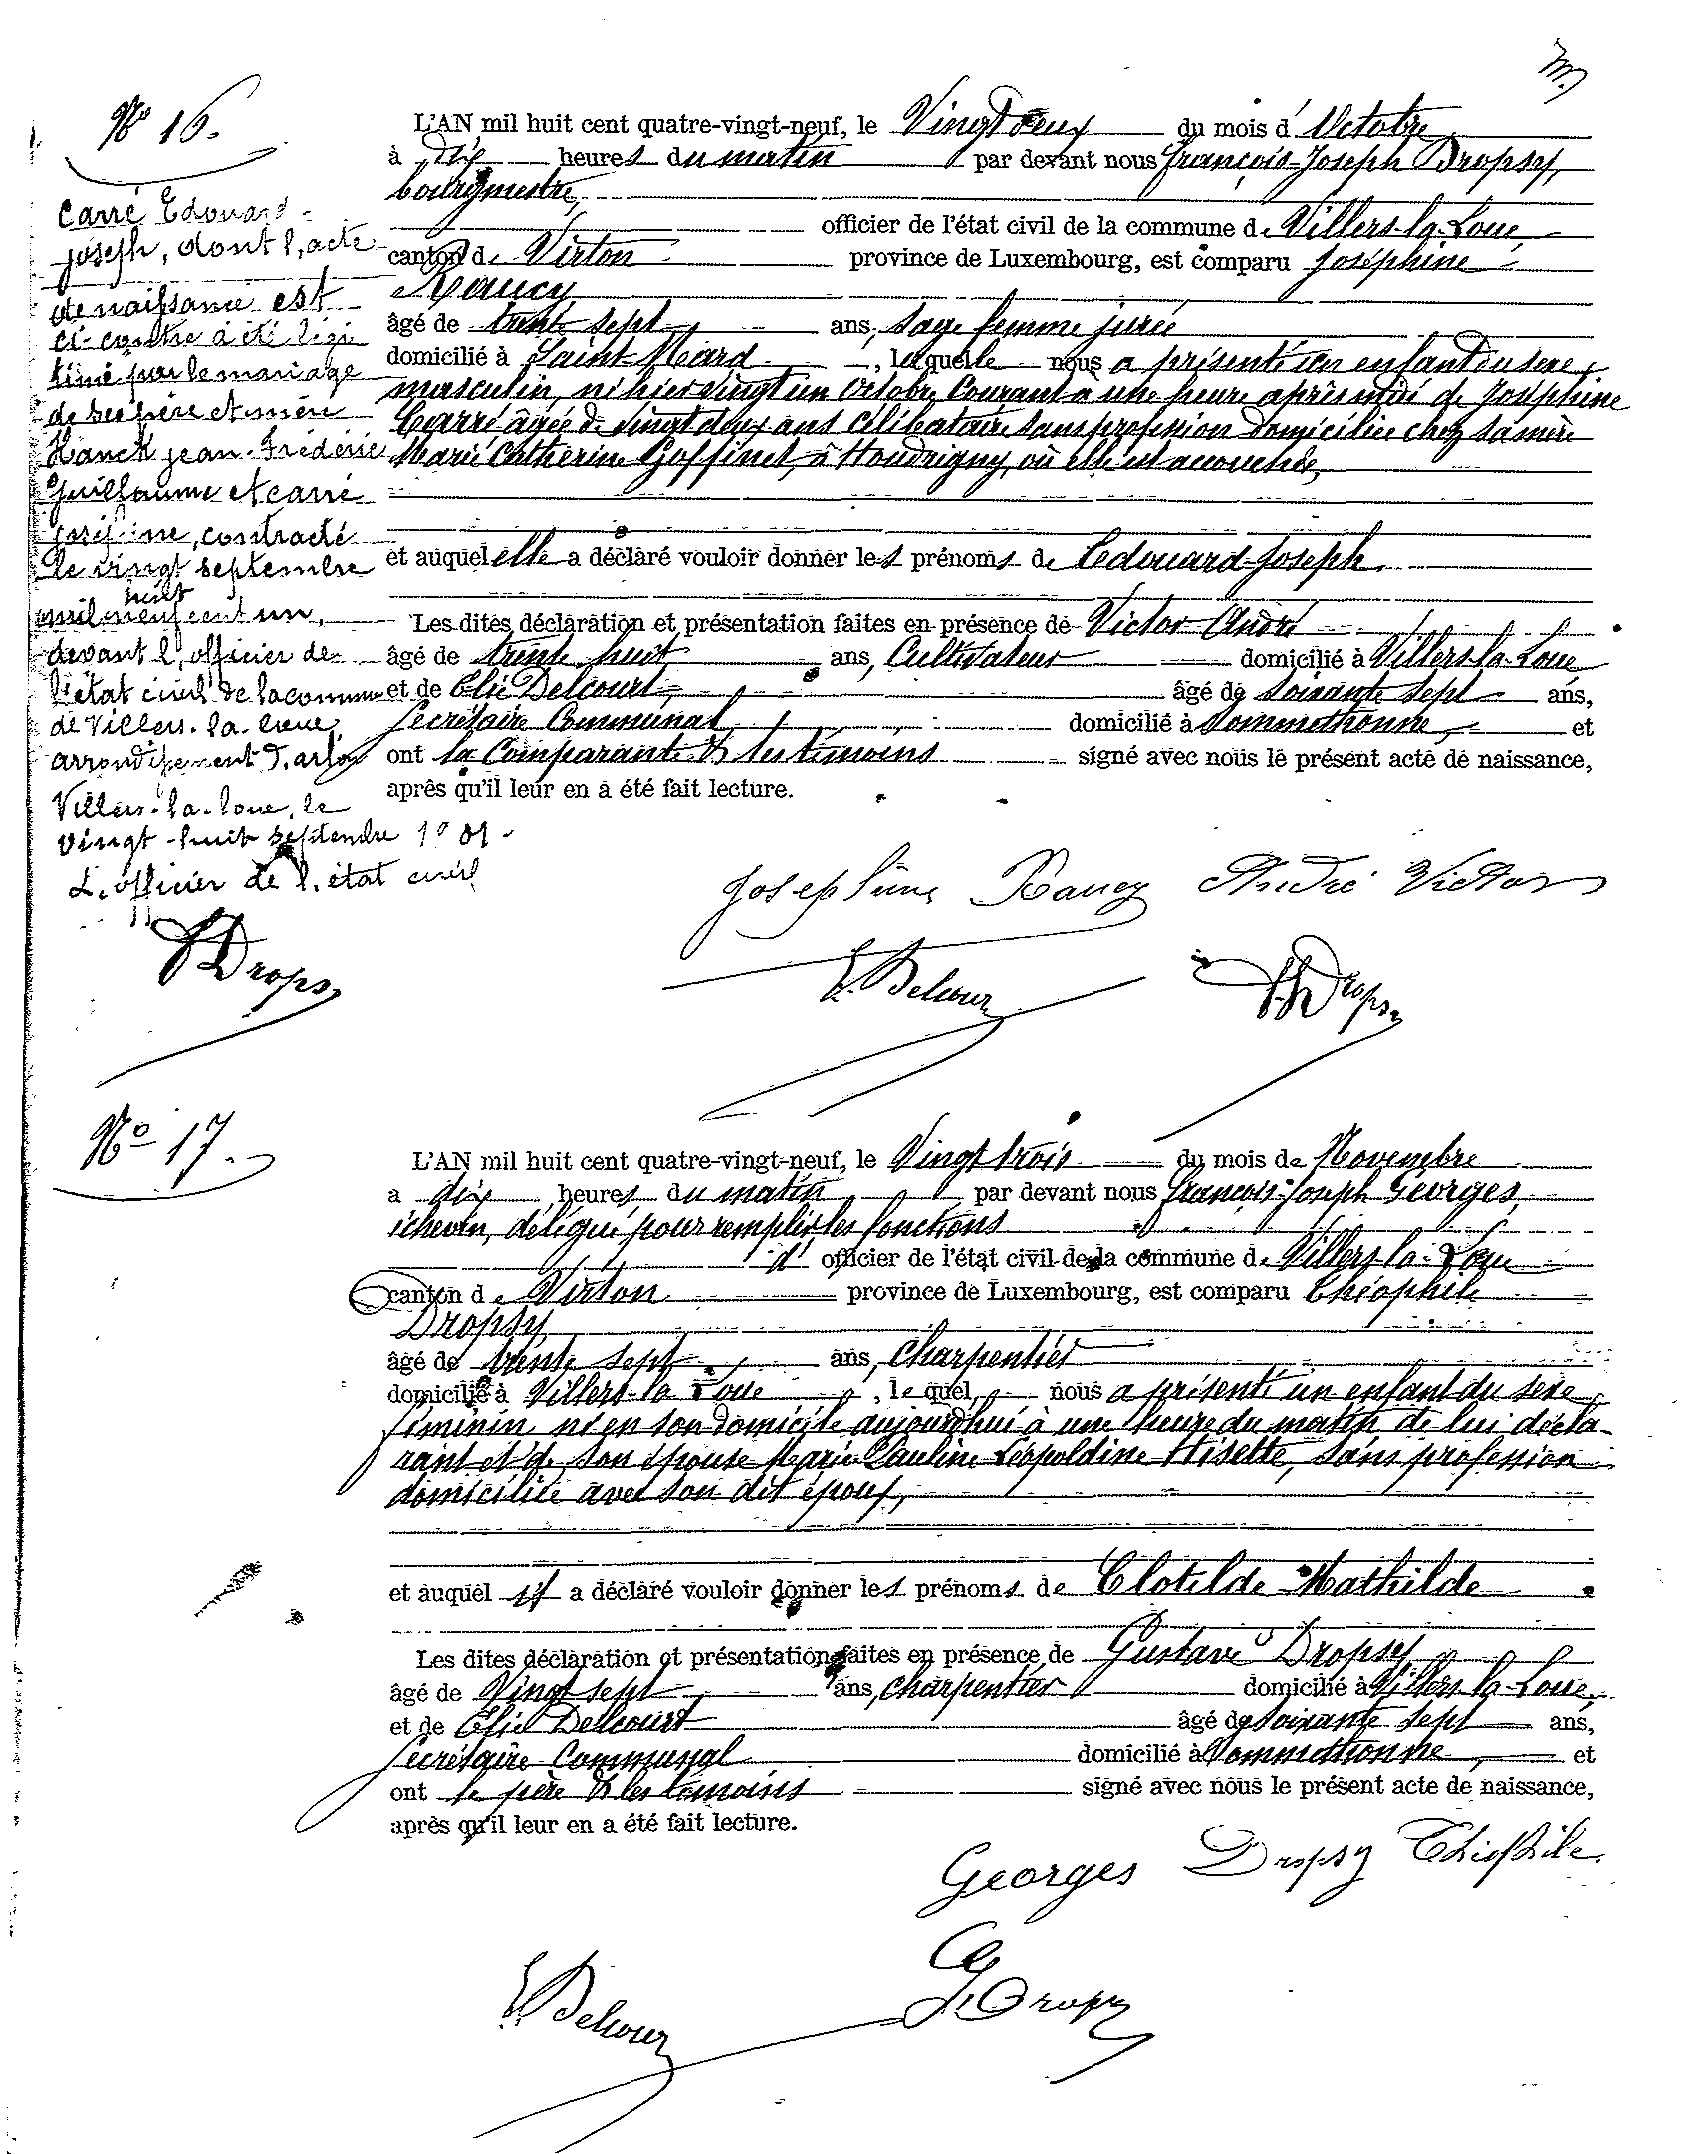 Nº 16.
L'AN mil huit cent quatre-vingt-neuf, le Vingt deux du mois d' Octobre
à dix heures du matin par devant nous François-Joseph Dropsy,
bourgmestre,
officier de l'état civil de la commune de Villers-la-Loue,
canton de Virton province de Luxembourg, est comparu Joséphine
Raucy
âgé de trente sept ans, sage femme jurée
domicilié à Saint-Mard, laquelle nous a présenté un enfant du sexe
masculin, né hier vingt un Octobre Courant à une heure après midi de Joséphine
Carré âgée de vingt deux ans célibataire sans profession domiciliée chez sa mère
Marie Catherine Goffinet, à Houdrigny, où elle est accouchée,
et auquel elle a déclaré vouloir donner les prénoms de Edouard-Joseph.
Les dites déclaration et présentation faites en présence de Victor André
âgé de trente huit ans, Cultivateur domicilié à Villers-la-Loue
et de Elie Delcourt, âgé de soixante sept ans,
Secrétaire Communal domicilié à Sommethonne, et
ont la Comparante & les témoins signé avec nous le présent acte de naissance,
après qu'il leur en a été fait lecture.
Carré Edouard-
joseph, dont l,acte
de naissance est
ci-contre a été légi
timé par le mariage
de ses père et mère
Hanck jean-Frédéric
Guillaume et carré
joséphine, contracté
le vingt septembre
huit
mil neuf cent un,
devant l,officier de
l'état civil de la commune
de Villers-la-loue,
arrondissement d,arlon
Villers-la-loue, le
vingt-huit septembre 1901.
L,officier de l,état civil
Dropsy
Joséphine Raucy André Victor
E. Delcour Dropsy
Nº 17.
L'AN mil huit cent quatre-vingt-neuf, le Vingt trois du mois de Novembre
a dix heures du matin par devant nous François-Joseph Georges,
échevin, délégué pour remplir les fonctions
d' officier de l'état civil de la commune de Villers-la-Loue
canton de Virton province de Luxembourg, est comparu Théophile
Dropsy
âgé de trente sept ans, Charpentier
domicilié à Villers-la-Loue, lequel, nous a présenté un enfant du sexe
féminin né en son domicile aujourd'hui à une heure du matin de lui décla-
rant et de son épouse Marie Pauline Léopoldine Hisette, sans profession
domiciliée avec son dit époux,
et auquel il a déclaré vouloir donner les prénoms de Clotilde Mathilde
Les dites déclaration et présentation faites en présence de Gustave Dropsy
âgé de Vingt sept ans, Charpentier domicilié à Villers-la-Loue,
et de Elie Delcourt âgé de soixante sept ans,
Secrétaire Communal domicilié à Sommethonne, et
ont le père & les témoins signé avec nous le présent acte de naissance,
après qu'il leur en a été fait lecture.
Georges Dropsy Théophile
E. Delcour G. Dropsy